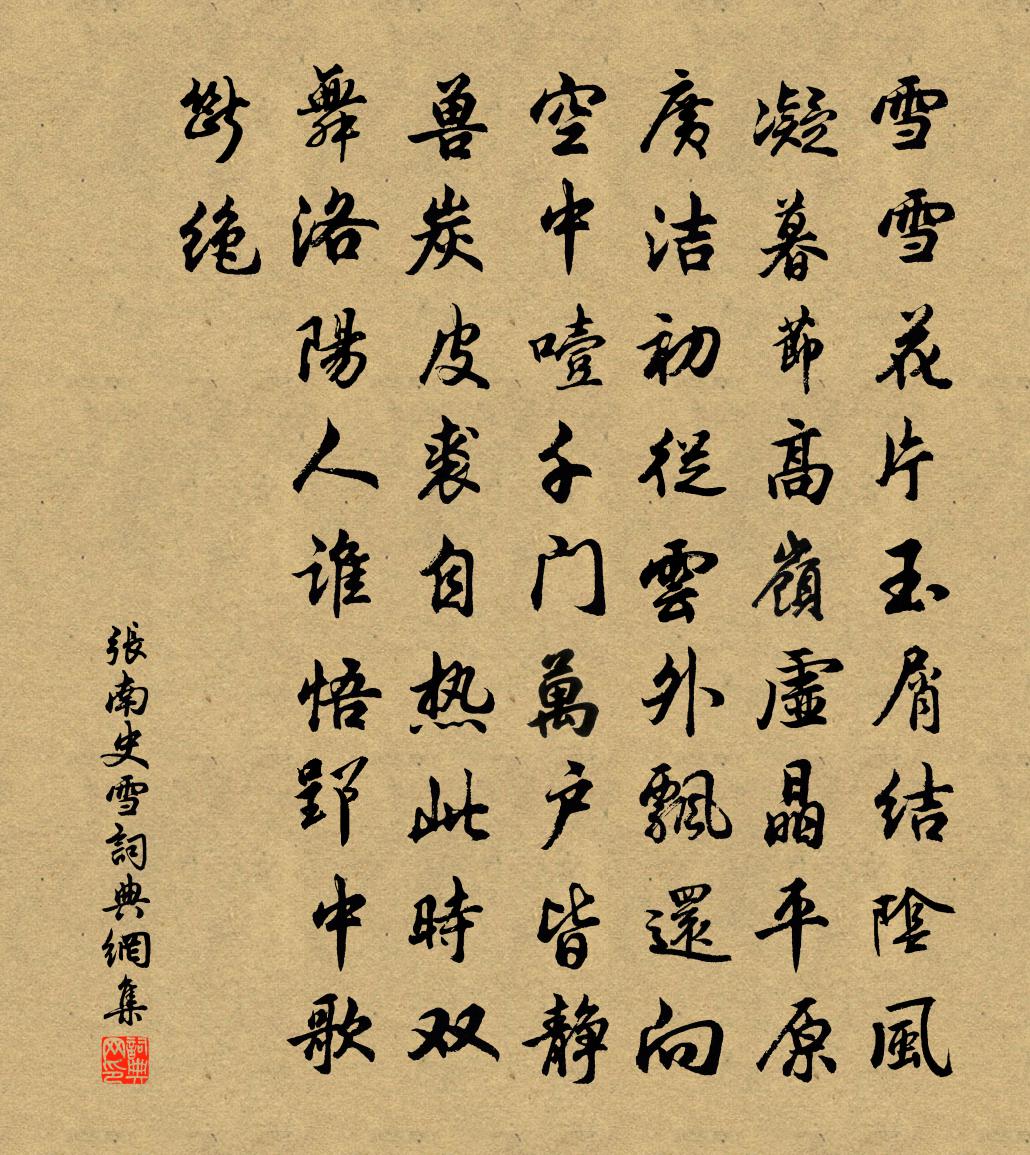 雪雪花片玉屑结陰風
凝暮節高嶺虛晶平原
廣洁初從雲外飄還向
空中噎千门萬户皆静
兽炭皮裘自热此時双
舞洛陽人谁悟郢中歌
斷绝
張南史雪詞典網集
詞典网印